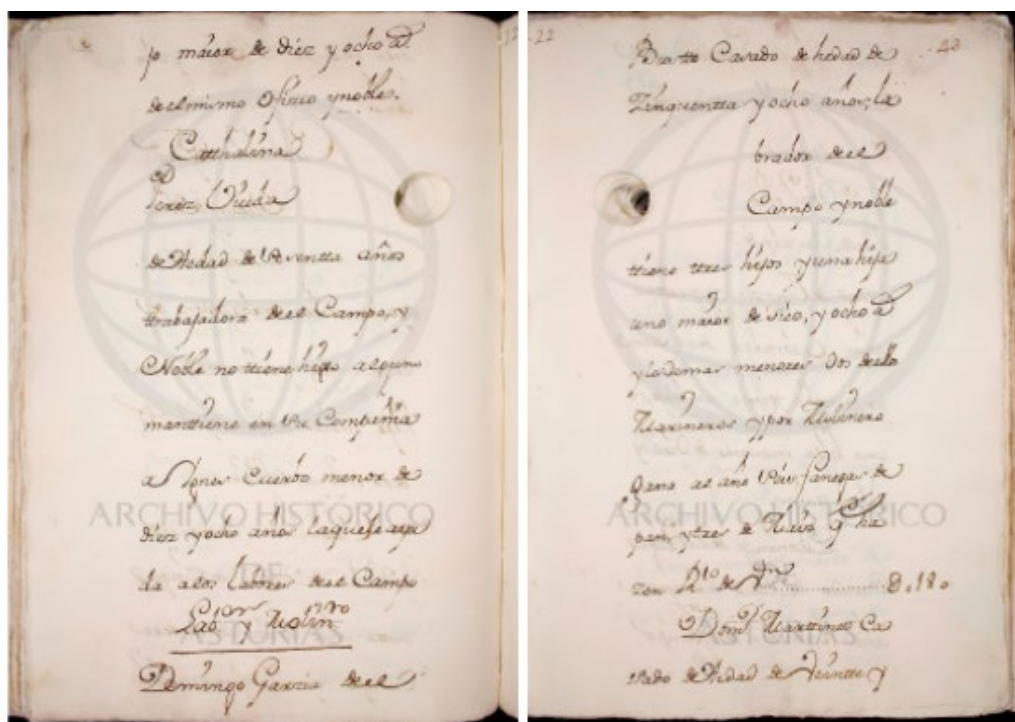 jo maior de diez y ocho as
de el mismo oficio y noble.
Catthalina
Perez, Viuda
de Hedad de sesentta años
ttrabajadora de el Campo, y
Noble no ttiene hijo alguno
manttiene en su Compañia
a Ygnes Cuerbo menor de
diez y ocho años la que le aiu
da a los labores de el Campo
Labor y Molinro
Domingo Garzia de el
22
Bustto Casado de hedad de
Zinquentta y ocho años, la
brador de el
Campo y noble
ttiene ttres hijos y una hija
uno maior de diez, y ocho as
y los demas menores dos de ellos
Marineros y por Molinero
Gana al año seis fanegas de
pan, y tres de Maiz qe ha
zen Rls de Vn 8.180
Domo Marttinez Ca
sado de Hedad de Veintte y
ARCHIVO HISTÓRICO
DE
ASTURIAS
ARCHIVO HISTÓRICO
ASTURIAS